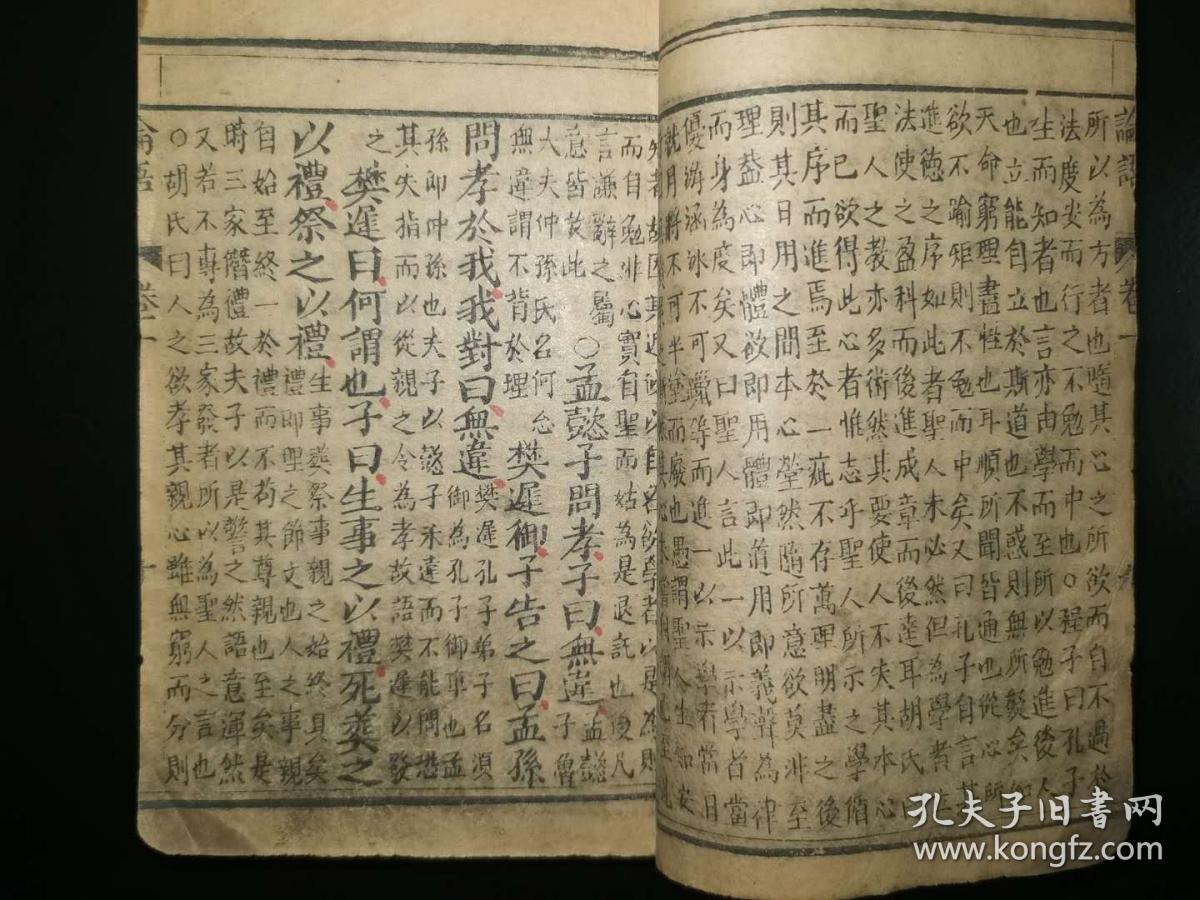 論語 卷一
所以為方者也隨其心之所欲而自不過於
法度安而行之不勉而中也○程子曰孔子
生而知者也言亦由學而至所以勉進後人
也立能自立於斯道也不惑則無所疑矣知
天命窮理盡性也耳順所聞皆通也從心所
欲不踰矩則不勉而中矣又曰孔子自言其
進德之序如此者聖人未必然但為學者立
法使之盈科而後進成章而後達耳胡氏曰
聖人之教亦多術然其要使人不失其本心
而已欲得此心者惟志乎聖人所示之學循
其序而進焉至於一疵不存萬理明盡之後
則其日用之間本心瑩然隨所意欲莫非至
理蓋心即體欲即用體即道用即義聲為律
而身為度矣又曰聖人言此一以示學者當
優游涵泳不可躐等而進一以示學者當日
就月將不可半塗而廢也愚謂聖人生知安
而自勉非心實自聖而姑為是退託也後凡
言謙辭之屬意皆放此○孟懿子問孝子曰無違孟懿子魯
大夫仲孫氏名何忌無違謂不背於理樊遲御子告之曰孟孫
問孝於我我對曰無違樊遲孔子弟子名須御為孔子御車也孟
孫即仲孫也夫子以懿子未達而不能問恐
其失指而以從親之令為孝故語樊遲以發
之樊遲曰何謂也子曰生事之以禮死葬之
以禮祭之以禮生事葬祭事親之始終具矣禮即理之節文也人之事親
自始至終一於禮而不苟其尊親也至矣是
時三家僭禮故夫子以是警之然語意渾然
又若不專為三家發者所以為聖人之言也
○胡氏曰人之欲孝其親心雖無窮而分則
論語 卷一 十
孔夫子旧书网
www.kongfz.com